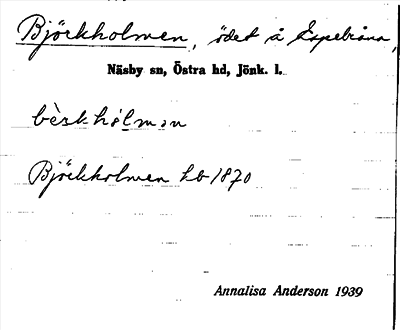 Björkholmen, ödet å
Näsby sn, Östra hd, Jönk. l.
Björkholmen hb 1870
Annalisa Anderson 1939